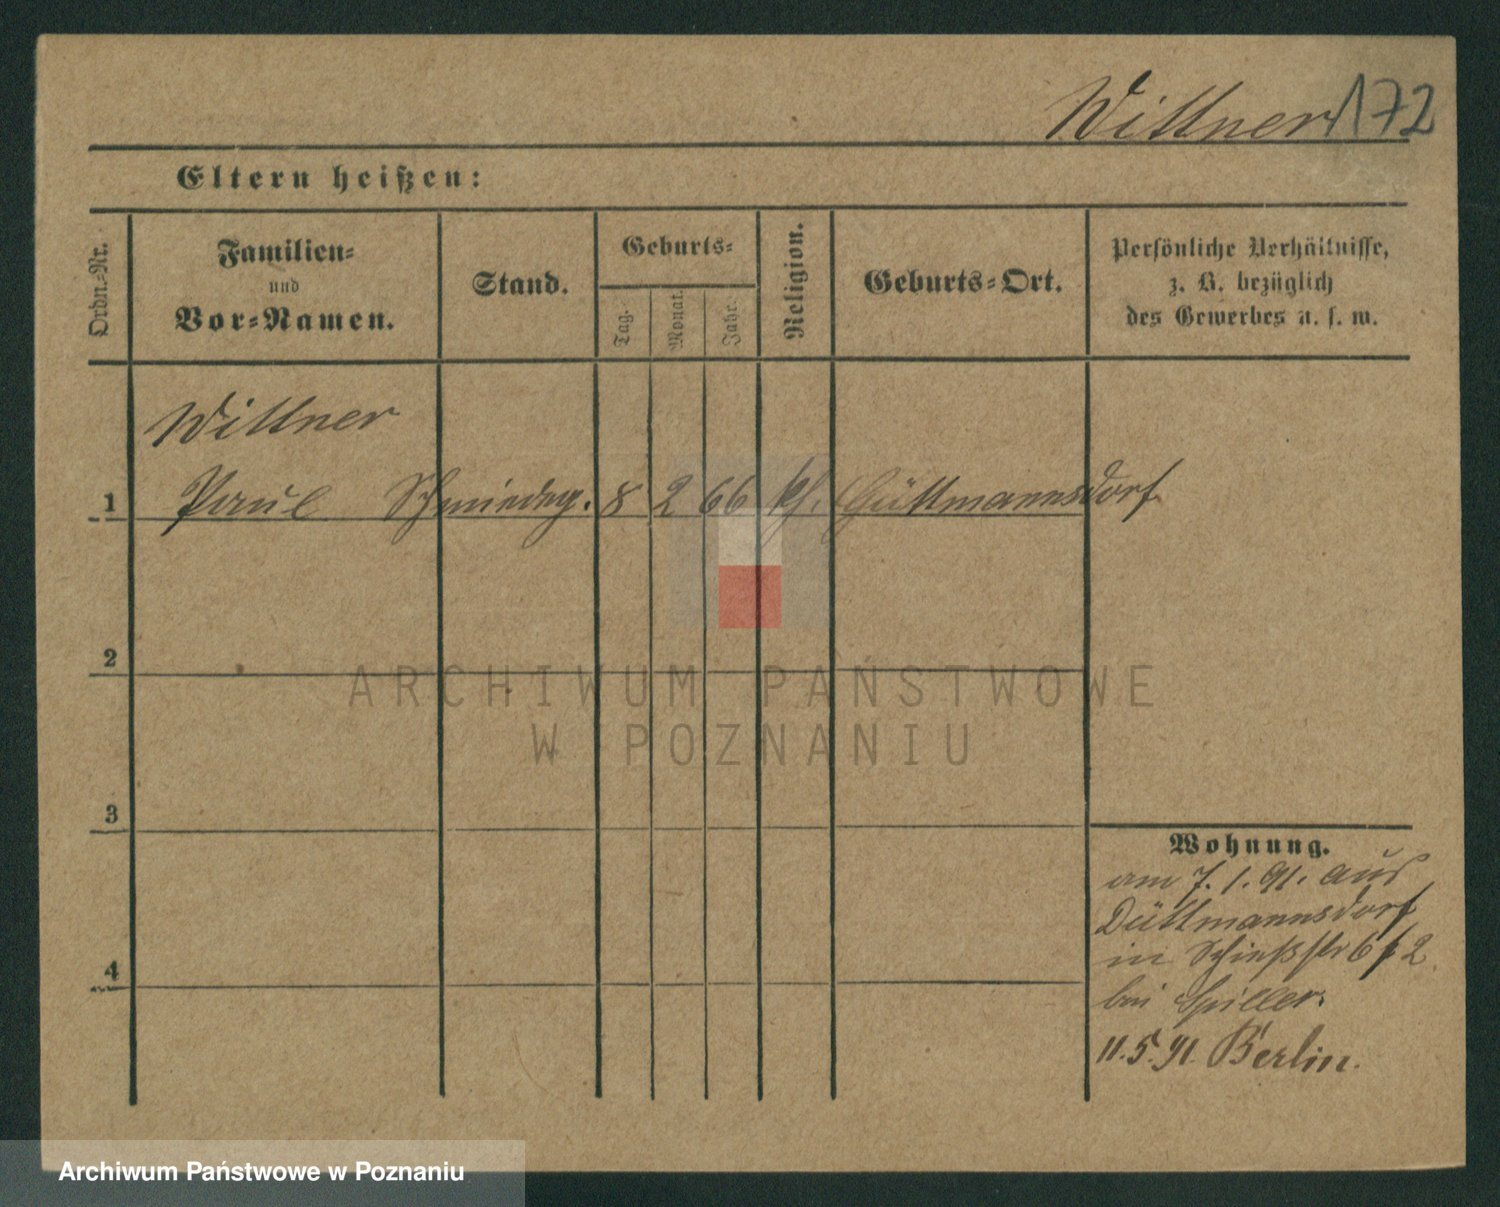 Wittner 172
Eltern heißen:
Ordn.-Nr.
Familien-
und
Vor-Namen.
Stand.
Geburts-
Tag.
Monat.
Jahr.
Religion.
Geburts-Ort.
Persönliche Verhältnisse,
z. B. bezüglich
des Gewerbes u. s. w.
Wittner
1 Paul Schmiedeg. 8 2 66 kh. Güttmannsdorf
2
ARCHIWUM PAŃSTWOWE
W POZNANIU
3
Wohnung.
am 7. 1. 91. aus
Düttmannsdorf
in Schießstr 6 f 2
bei Spiller.
11.5.91. Berlin.
4
Archiwum Państwowe w Poznaniu